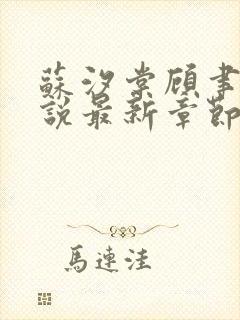 蘇汐棠顧聿
說最新章節
馬連洼